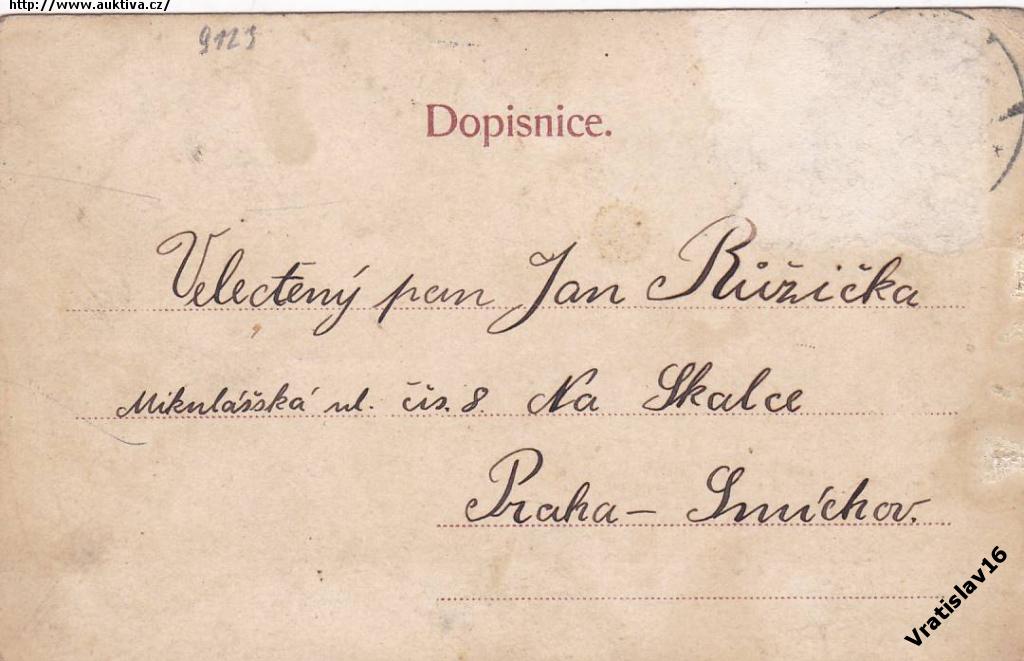 http://www.auktiva.cz/
9123
Dopisnice.
Velectěný pan Jan Růžička
Mikulášská ul. čís. 8. Na Skalce
Praha – Smíchov.
Vratislav16